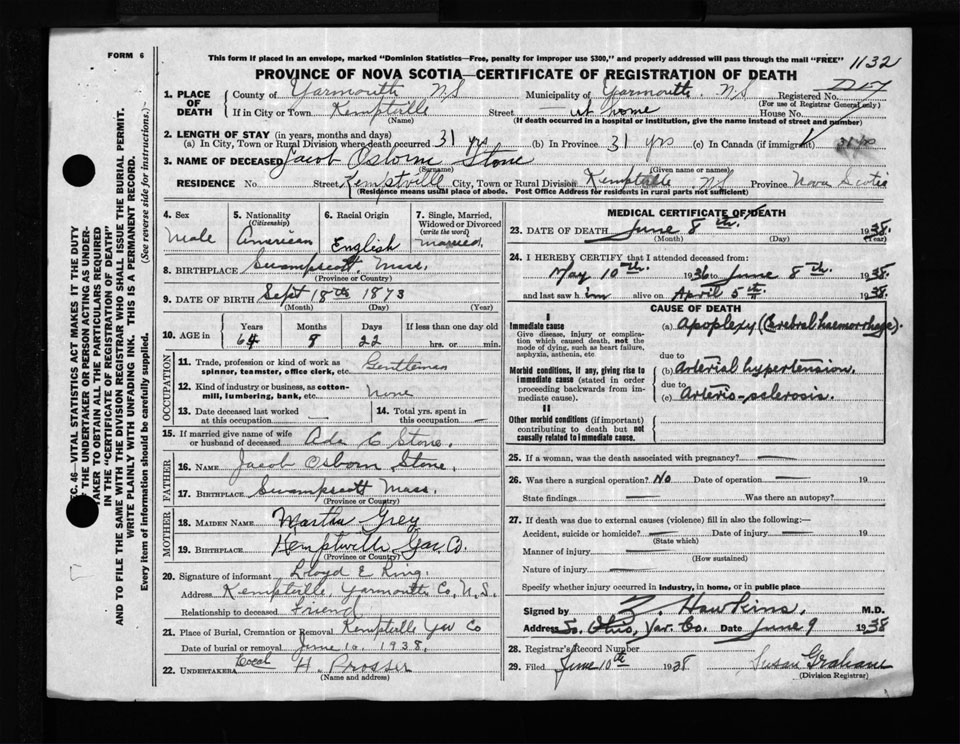 FORM 6
This form if placed in an envelope, marked "Dominion Statistics—Free, penalty for improper use $300," and properly addressed will pass through the mail "FREE"
1132
PROVINCE OF NOVA SCOTIA—CERTIFICATE OF REGISTRATION OF DEATH
1. PLACE OF DEATH
County of Yarmouth N.S Municipality of Yarmouth. N.S Registered No.
(For use of Registrar General only)
If in City or Town Kemptville Street at home House No.
(Name) (If death occurred in a hospital or institution, give the name instead of street and number)
2. LENGTH OF STAY (in years, months and days)
(a) In City, Town or Rural Division where death occurred 31 yrs (b) In Province 31 yrs (c) In Canada (if immigrant) 31 yrs
3. NAME OF DECEASED Jacob Osborn Stone
(Surname) (Given name or names)
RESIDENCE No. Street, Kemptville City, Town or Rural Division Kemptville N.S Province Nova Scotia
(Residence means usual place of abode. Post Office Address for residents in rural parts not sufficient)
4. Sex Male
5. Nationality (Citizenship) American
6. Racial Origin English
7. Single, Married, Widowed or Divorced (write the word) married
8. BIRTHPLACE Swampscott, Mass.
(Province or Country)
9. DATE OF BIRTH Sept 18th 1873
(Month) (Day) (Year)
10. AGE in Years Months Days If less than one day old
64 8 22 hrs. or min.
OCCUPATION
11. Trade, profession or kind of work as spinner, teamster, office clerk, etc. Gentleman
12. Kind of industry or business, as cotton-mill, lumbering, bank, etc. None
13. Date deceased last worked at this occupation —
14. Total yrs. spent in this occupation —
15. If married give name of wife or husband of deceased Ada C Stone.
FATHER
16. NAME Jacob Osborn Stone,
17. BIRTHPLACE Swampscott Mass.
(Province or Country)
MOTHER
18. MAIDEN NAME Martha Grey
19. BIRTHPLACE Kemptville Yar. Co.
(Province or Country)
20. Signature of informant Lloyd E King.
Address Kemptville Yarmouth Co, N.S.
Relationship to deceased Friend
21. Place of Burial, Cremation or Removal Kemptville Yar Co
Date of burial or removal June 10. 1938.
22. UNDERTAKER Local H. Prosser
(Name and address)
MEDICAL CERTIFICATE OF DEATH
23. DATE OF DEATH June 8th. 1938.
(Month) (Day) (Year)
24. I HEREBY CERTIFY that I attended deceased from:
May 10th. 1936 to June 8th. 1938.
and last saw him alive on April 5th 1938.
CAUSE OF DEATH
I
Immediate cause
Give disease, injury or complication which caused death, not the mode of dying, such as heart failure, asphyxia, asthenia, etc
(a) Apoplexy (Cerebral haemorrhage).
due to
Morbid conditions, if any, giving rise to immediate cause (stated in order proceeding backwards from immediate cause).
(b) Arterial hypertension.
due to
(c) Arterio-sclerosis.
II
Other morbid conditions (if important) contributing to death but not causally related to immediate cause.
25. If a woman, was the death associated with pregnancy? —
26. Was there a surgical operation? No Date of operation — 19
State findings — Was there an autopsy?
27. If death was due to external causes (violence) fill in also the following:—
Accident, suicide or homicide? — Date of injury — 19
(State which)
Manner of injury —
(How sustained)
Nature of injury —
Specify whether injury occurred in industry, in home, or in public place
Signed by Z. Hawkins. M.D.
Address So. Ohio, Yar. Co. Date June 9 1938
28. Registrar's Record Number
29. Filed June 10th 1938 Susan Graham
(Division Registrar)
SEC. 46—VITAL STATISTICS ACT MAKES IT THE DUTY
OF THE UNDERTAKER OR PERSON ACTING AS UNDER-
TAKER TO OBTAIN ALL THE PARTICULARS REQUIRED
IN THE "CERTIFICATE OF REGISTRATION OF DEATH"
AND TO FILE THE SAME WITH THE DIVISION REGISTRAR WHO SHALL ISSUE THE BURIAL PERMIT.
WRITE PLAINLY WITH UNFADING INK. THIS IS A PERMANENT RECORD.
Every item of information should be carefully supplied. (See reverse side for instructions.)